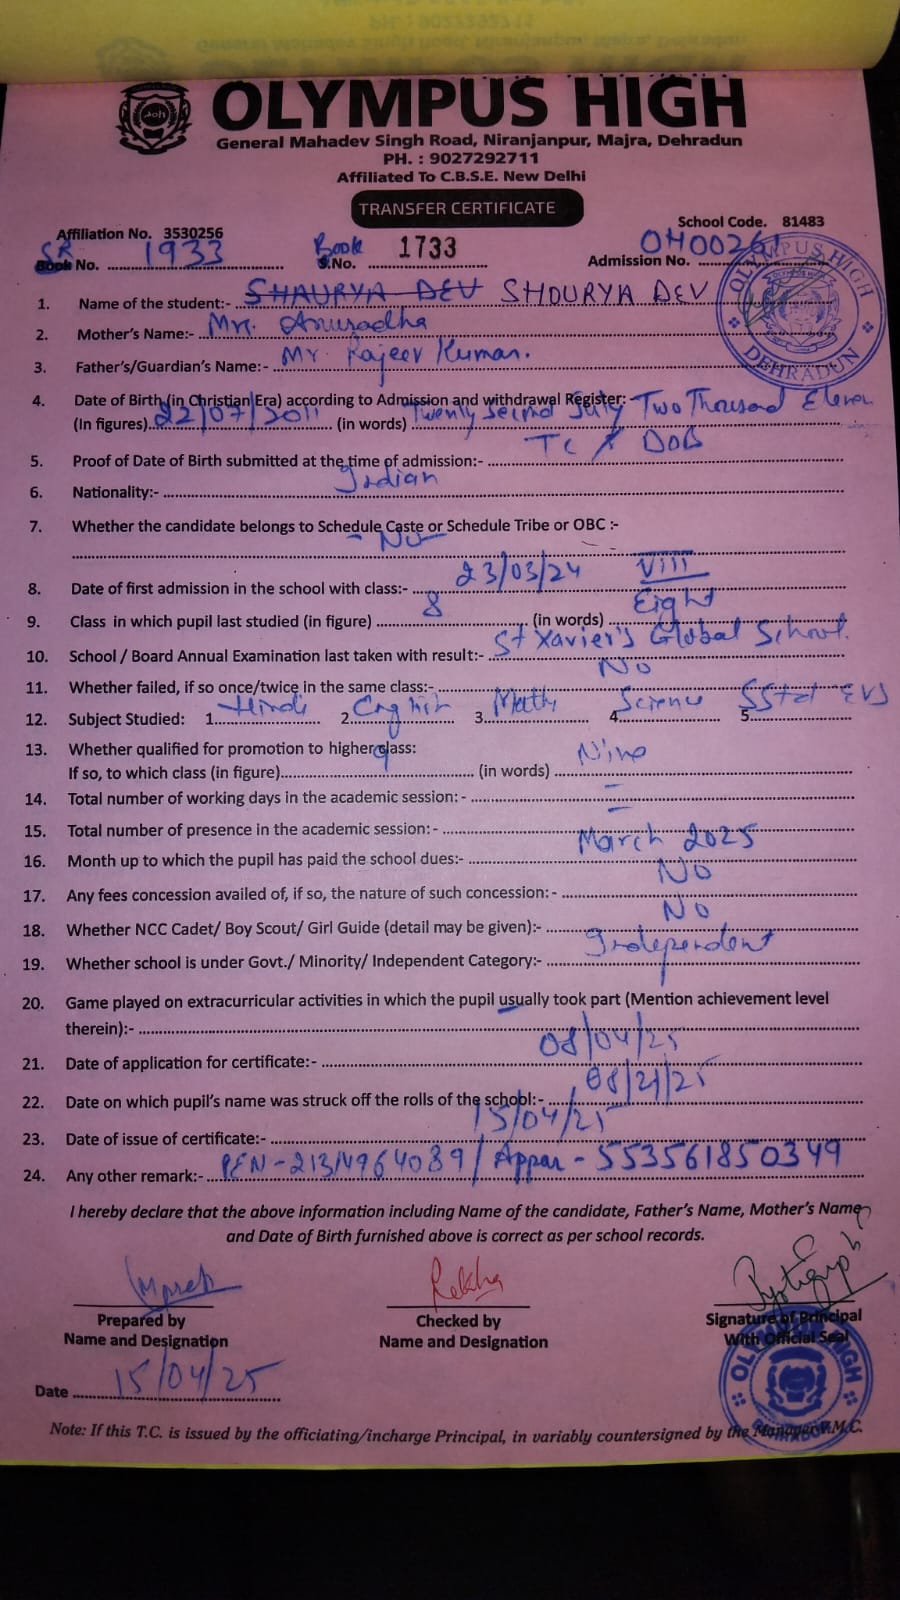 OLYMPUS HIGH
General Mahadev Singh Road, Niranjanpur, Majra, Dehradun
PH. : 9027292711
Affiliated To C.B.S.E. New Delhi
TRANSFER CERTIFICATE
Affiliation No. 3530256 School Code. 81483
SR Book No. 1933 Book S.No. 1733 Admission No. OH00261
OLYMPUS HIGH DEHRADUN
1. Name of the student:- SHAURYA DEV SHOURYA DEV
2. Mother's Name:- Mrs. Anuradha
3. Father's/Guardian's Name:- Mr. Rajeev Kumar.
4. Date of Birth (in Christian Era) according to Admission and withdrawal Register:
(In figures) 22/07/2011 (in words) Twenty Second July Two Thousand Eleven
5. Proof of Date of Birth submitted at the time of admission:- TC / DOB
6. Nationality:- Indian
7. Whether the candidate belongs to Schedule Caste or Schedule Tribe or OBC :-
No
8. Date of first admission in the school with class:- 23/03/24 VIII
9. Class in which pupil last studied (in figure) 8 (in words) Eight
10. School / Board Annual Examination last taken with result:- St Xavier's Global School.
11. Whether failed, if so once/twice in the same class:- No
12. Subject Studied: 1. Hindi 2. English 3. Math 4. Science 5. SStd EVS
13. Whether qualified for promotion to higher class:
If so, to which class (in figure) 9 (in words) Nine
14. Total number of working days in the academic session: - –
15. Total number of presence in the academic session: - –
16. Month up to which the pupil has paid the school dues:- March 2025
17. Any fees concession availed of, if so, the nature of such concession: - No
18. Whether NCC Cadet/ Boy Scout/ Girl Guide (detail may be given):- No
19. Whether school is under Govt./ Minority/ Independent Category:- Independent
20. Game played on extracurricular activities in which the pupil usually took part (Mention achievement level
therein):-
21. Date of application for certificate:- 08/04/25
22. Date on which pupil's name was struck off the rolls of the school:- 08/21/25
23. Date of issue of certificate:- 15/04/25
24. Any other remark:- PEN - 21314964089 / Appar - 553561850349
I hereby declare that the above information including Name of the candidate, Father's Name, Mother's Name
and Date of Birth furnished above is correct as per school records.
Rekha
Prepared by Checked by Signature of Principal
Name and Designation Name and Designation With Official Seal
Date 15/04/25
Note: If this T.C. is issued by the officiating/incharge Principal, in variably countersigned by the Manager V.M.C.